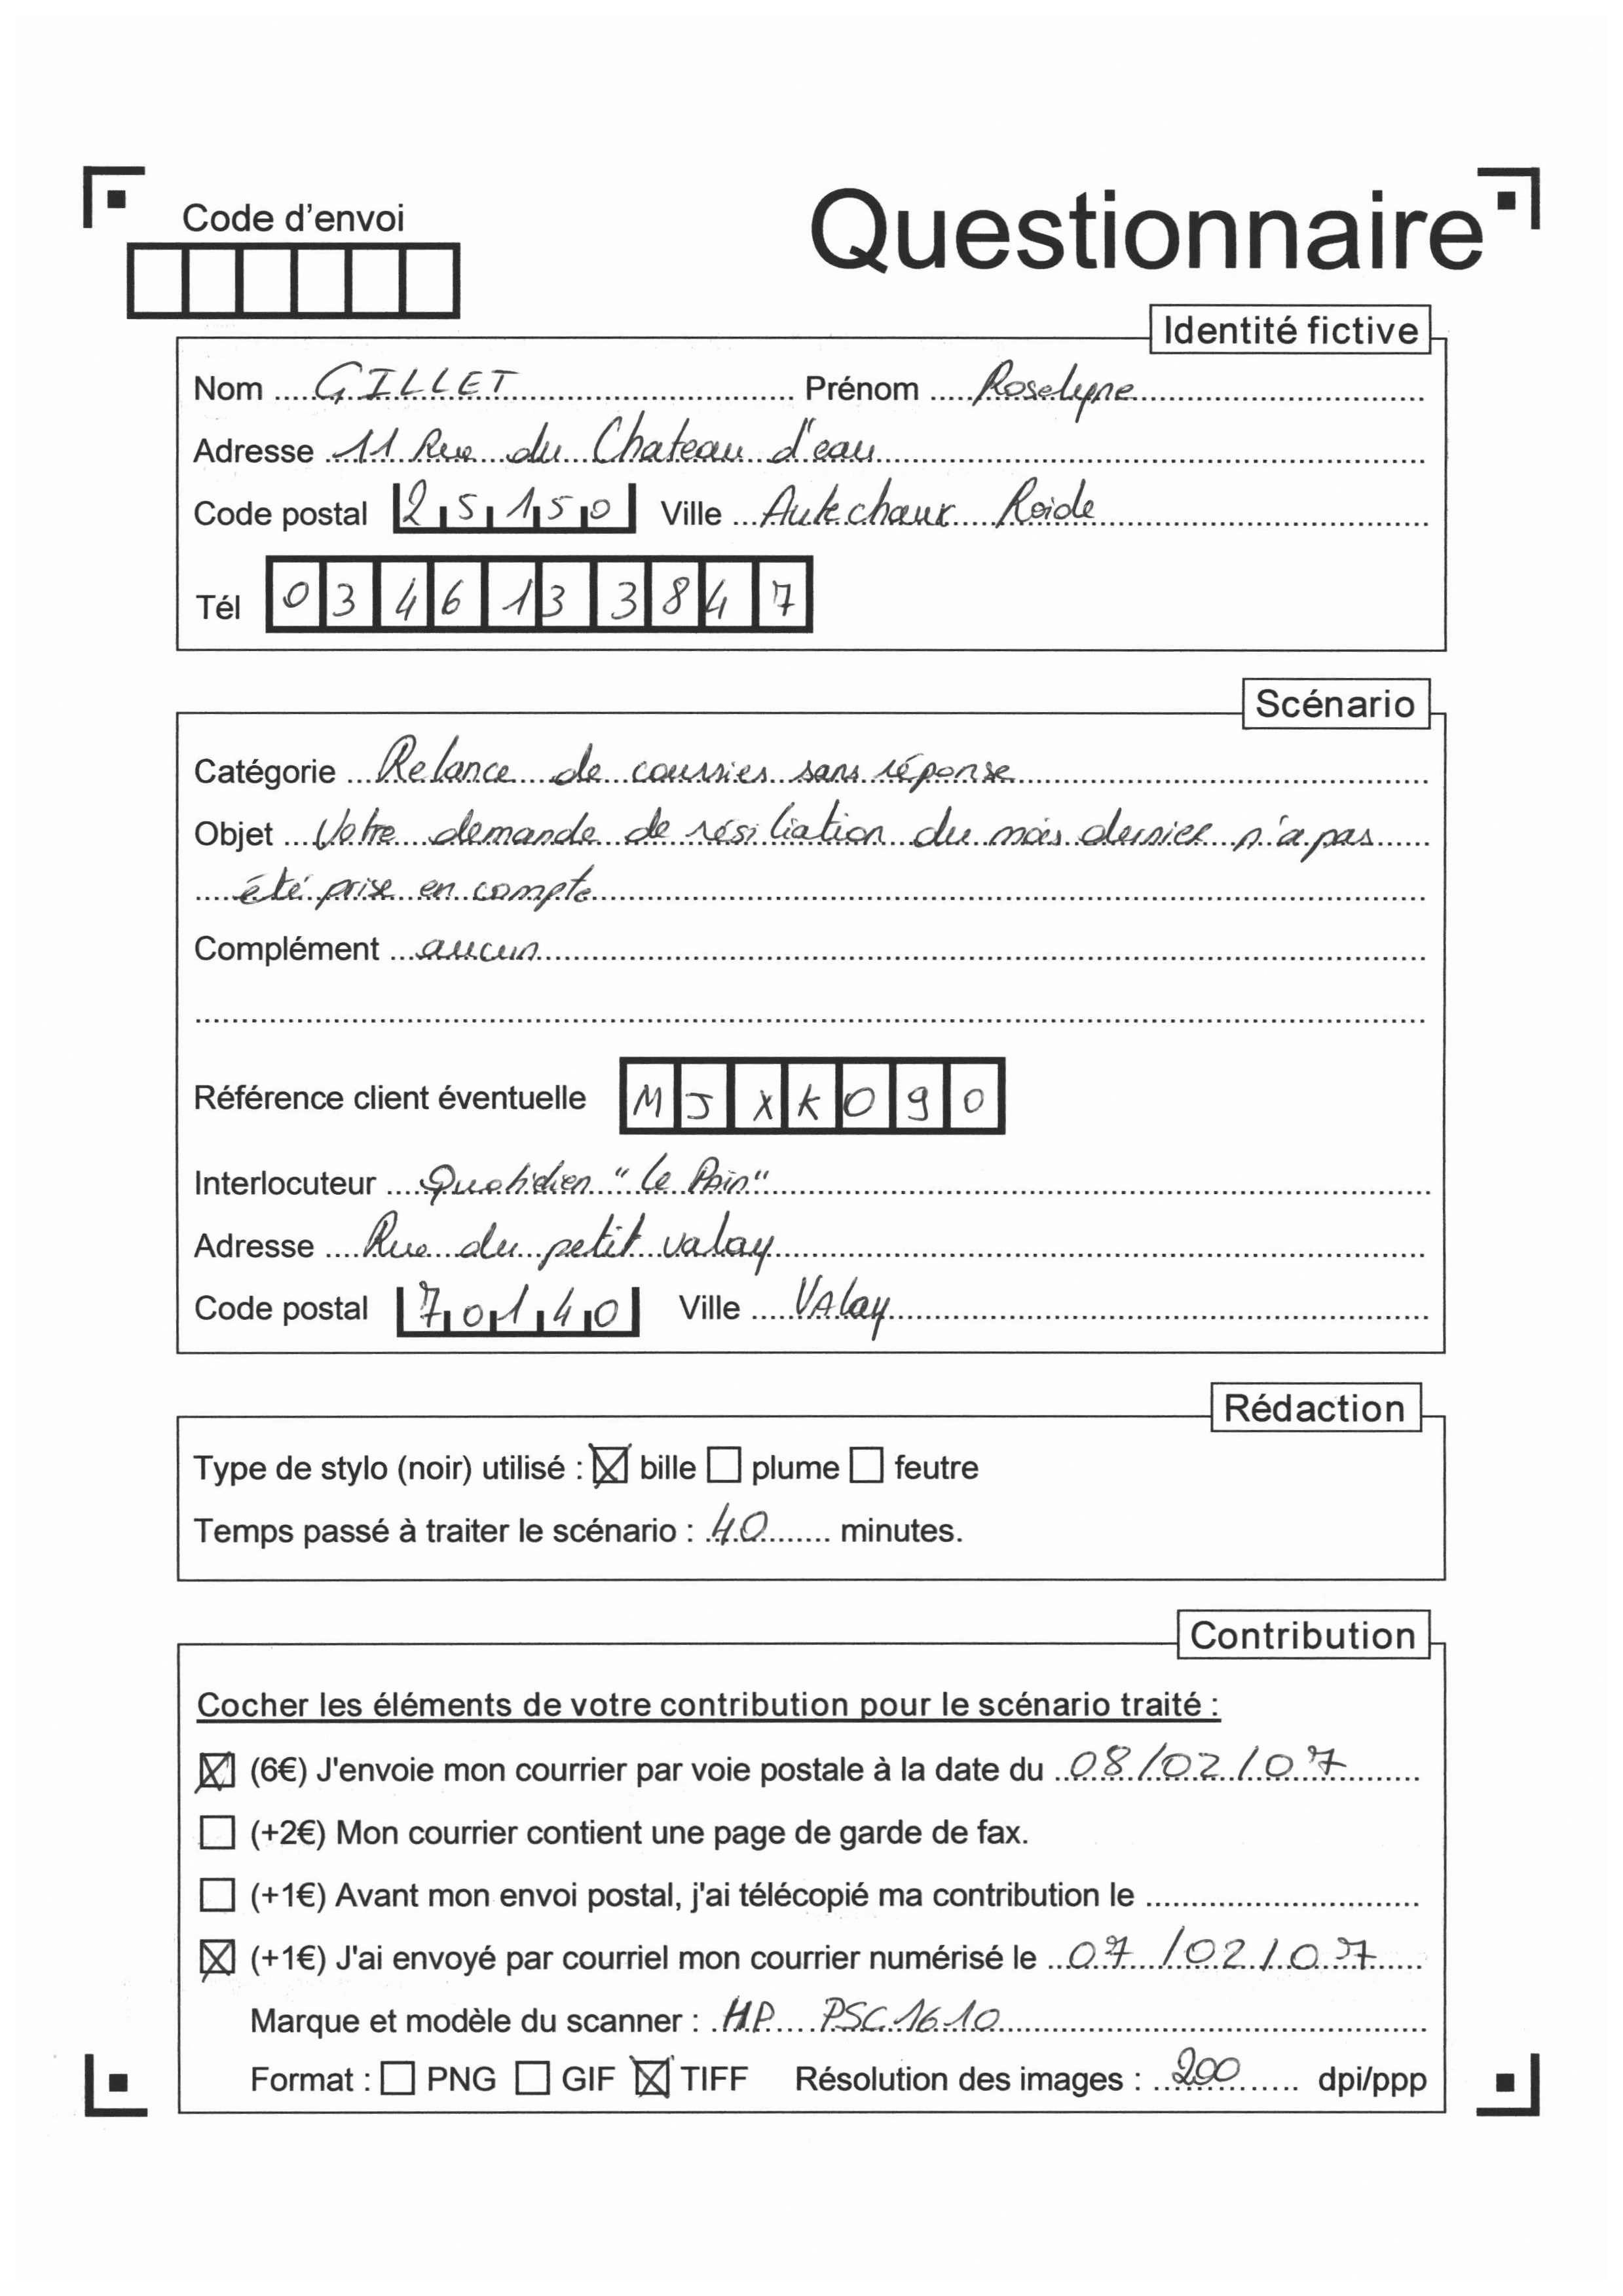 Code d'envoi
Questionnaire
Identité fictive
Nom GILLET Prénom Roselyne
Adresse 11 Rue du Chateau d'eau
Code postal 25150 Ville Autechaux Roide
Tél 0346133847
Scénario
Catégorie Relance de courrier sans réponse
Objet Votre demande de résiliation du mois dernier n'a pas
été prise en compte
Complément aucun
Référence client éventuelle MJXKO90
Interlocuteur Quotidien "Le Pain"
Adresse Rue du petit valay
Code postal 70140 Ville VAlay
Rédaction
Type de stylo (noir) utilisé : ☒ bille ☐ plume ☐ feutre
Temps passé à traiter le scénario : 40 minutes.
Contribution
Cocher les éléments de votre contribution pour le scénario traité :
☒ (6€) J'envoie mon courrier par voie postale à la date du 08/02/07
☐ (+2€) Mon courrier contient une page de garde de fax.
☐ (+1€) Avant mon envoi postal, j'ai télécopié ma contribution le
☒ (+1€) J'ai envoyé par courriel mon courrier numérisé le 07/02/07
Marque et modèle du scanner : HP PSC 1610
Format : ☐ PNG ☐ GIF ☒ TIFF Résolution des images : 200 dpi/ppp